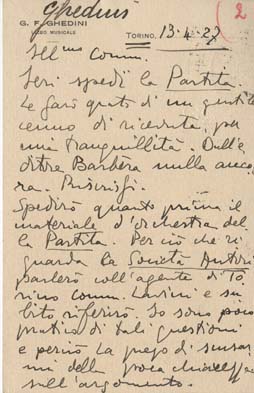 Ghedini
2
G. F. GHEDINI
LICEO MUSICALE
TORINO, 13-4-27
Ill.mo Comm.
Ieri spedii la Partita.
Le sarò grato di un gentile
cenno di ricevuta, per
mia tranquillità. Dall'e
ditore Barbèra nulla anco
ra. Riscrissi.
Spedirò quanto prima il
materiale d'orchestra del
la Partita. Perciò che ri
guarda la Società Autori
parlerò coll'agente di To
rino Comm. Lavini e su
bito riferirò. Io sono poco
pratico di tali questioni
e perciò la prego di scusar
mi della poca chiarezza
sull'argomento.